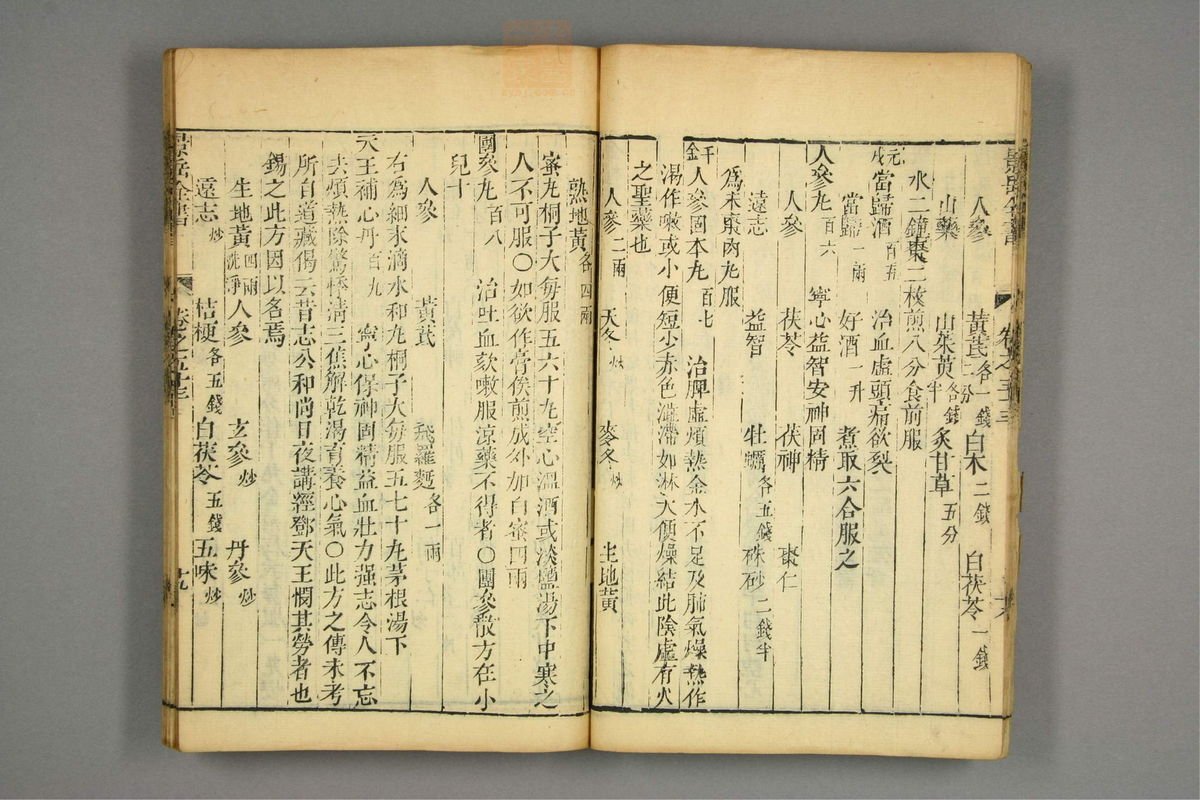 人參 黃芪各一錢二分 白朮二錢 白茯苓一錢
山藥 山茱萸各錢半 炙甘草五分
水二鐘棗二枚煎八分食前服
元戎當歸酒百五 治血虛頭痛欲裂
當歸一兩 好酒一升 煮取六合服之
人參丸百六 寧心益智安神固精
人參 茯苓 茯神 棗仁
遠志 益智 牡蠣各五錢 硃砂二錢半
為末棗肉丸服
千金人參固本丸百七 治脾虛煩熱金水不足及肺氣燥熱作
渴作嗽或小便短少赤色澀滯如淋大便燥結此陰虛有火
之聖藥也
人參二兩 天冬炒 麥冬炒 生地黃
熟地黃各四兩
蜜丸桐子大每服五六十丸空心溫酒或淡鹽湯下中寒之
人不可服○如欲作膏俟煎成外加白蜜四兩
團參丸百八 治吐血欬嗽服涼藥不得者○團參散方在小
兒十
人參 黃芪 飛羅麪各一兩
右為細末滴水和丸桐子大每服五七十丸茅根湯下
天王補心丹百九 寧心保神固精益血壯力強志令人不忘
去煩熱除驚悸清三焦解乾渴育養心氣○此方之傳未考
所自道藏偈云昔志公和尚日夜講經鄧天王憫其勞者也
錫之此方因以名焉
生地黃四兩洗淨 人參 玄參炒 丹參炒
遠志炒 桔梗各五錢 白茯苓五錢 五味炒
景岳全書 卷之五十三 十九